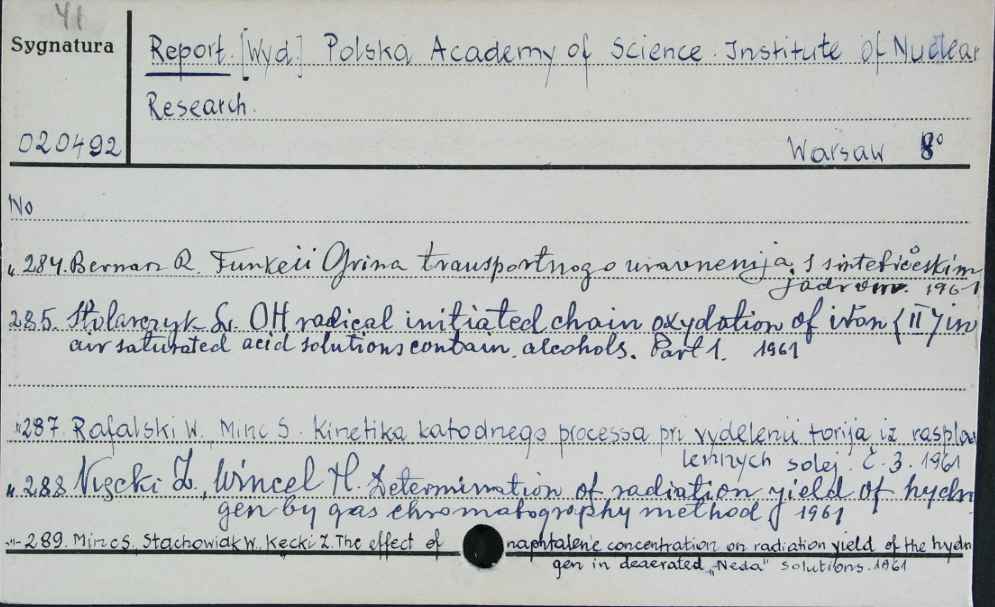 41
Sygnatura
Report. [Wyd.] Polska Academy of Science. Institute of Nuclear
Research.
020492
Warsaw 8°
No
„ 284. Berman R. Funkcii Grina transportnogo uravnenija s sintetičeskim
jadrom. 1961
285. Stolarczyk L. OH radical initiated chain oxydation of iron (II) in
air saturated acid solutions contain. alcohols. Part 1. 1961
„ 287. Rafalski W., Minc S. Kinetika katodnego processa pri vydelenii torija iz rasplav
lennych solej. Č. 3. 1961
„ 288 Kęcki Z., Wincel H. Determination of radiation yield of hydro
gen by gas chromatography method 1961
-"- 289. Minc S., Stachowiak W. Kęcki Z. The effect of naphtalene concentration on radiation yield of the hydro
gen in deaerated „Neda" solutions. 1961